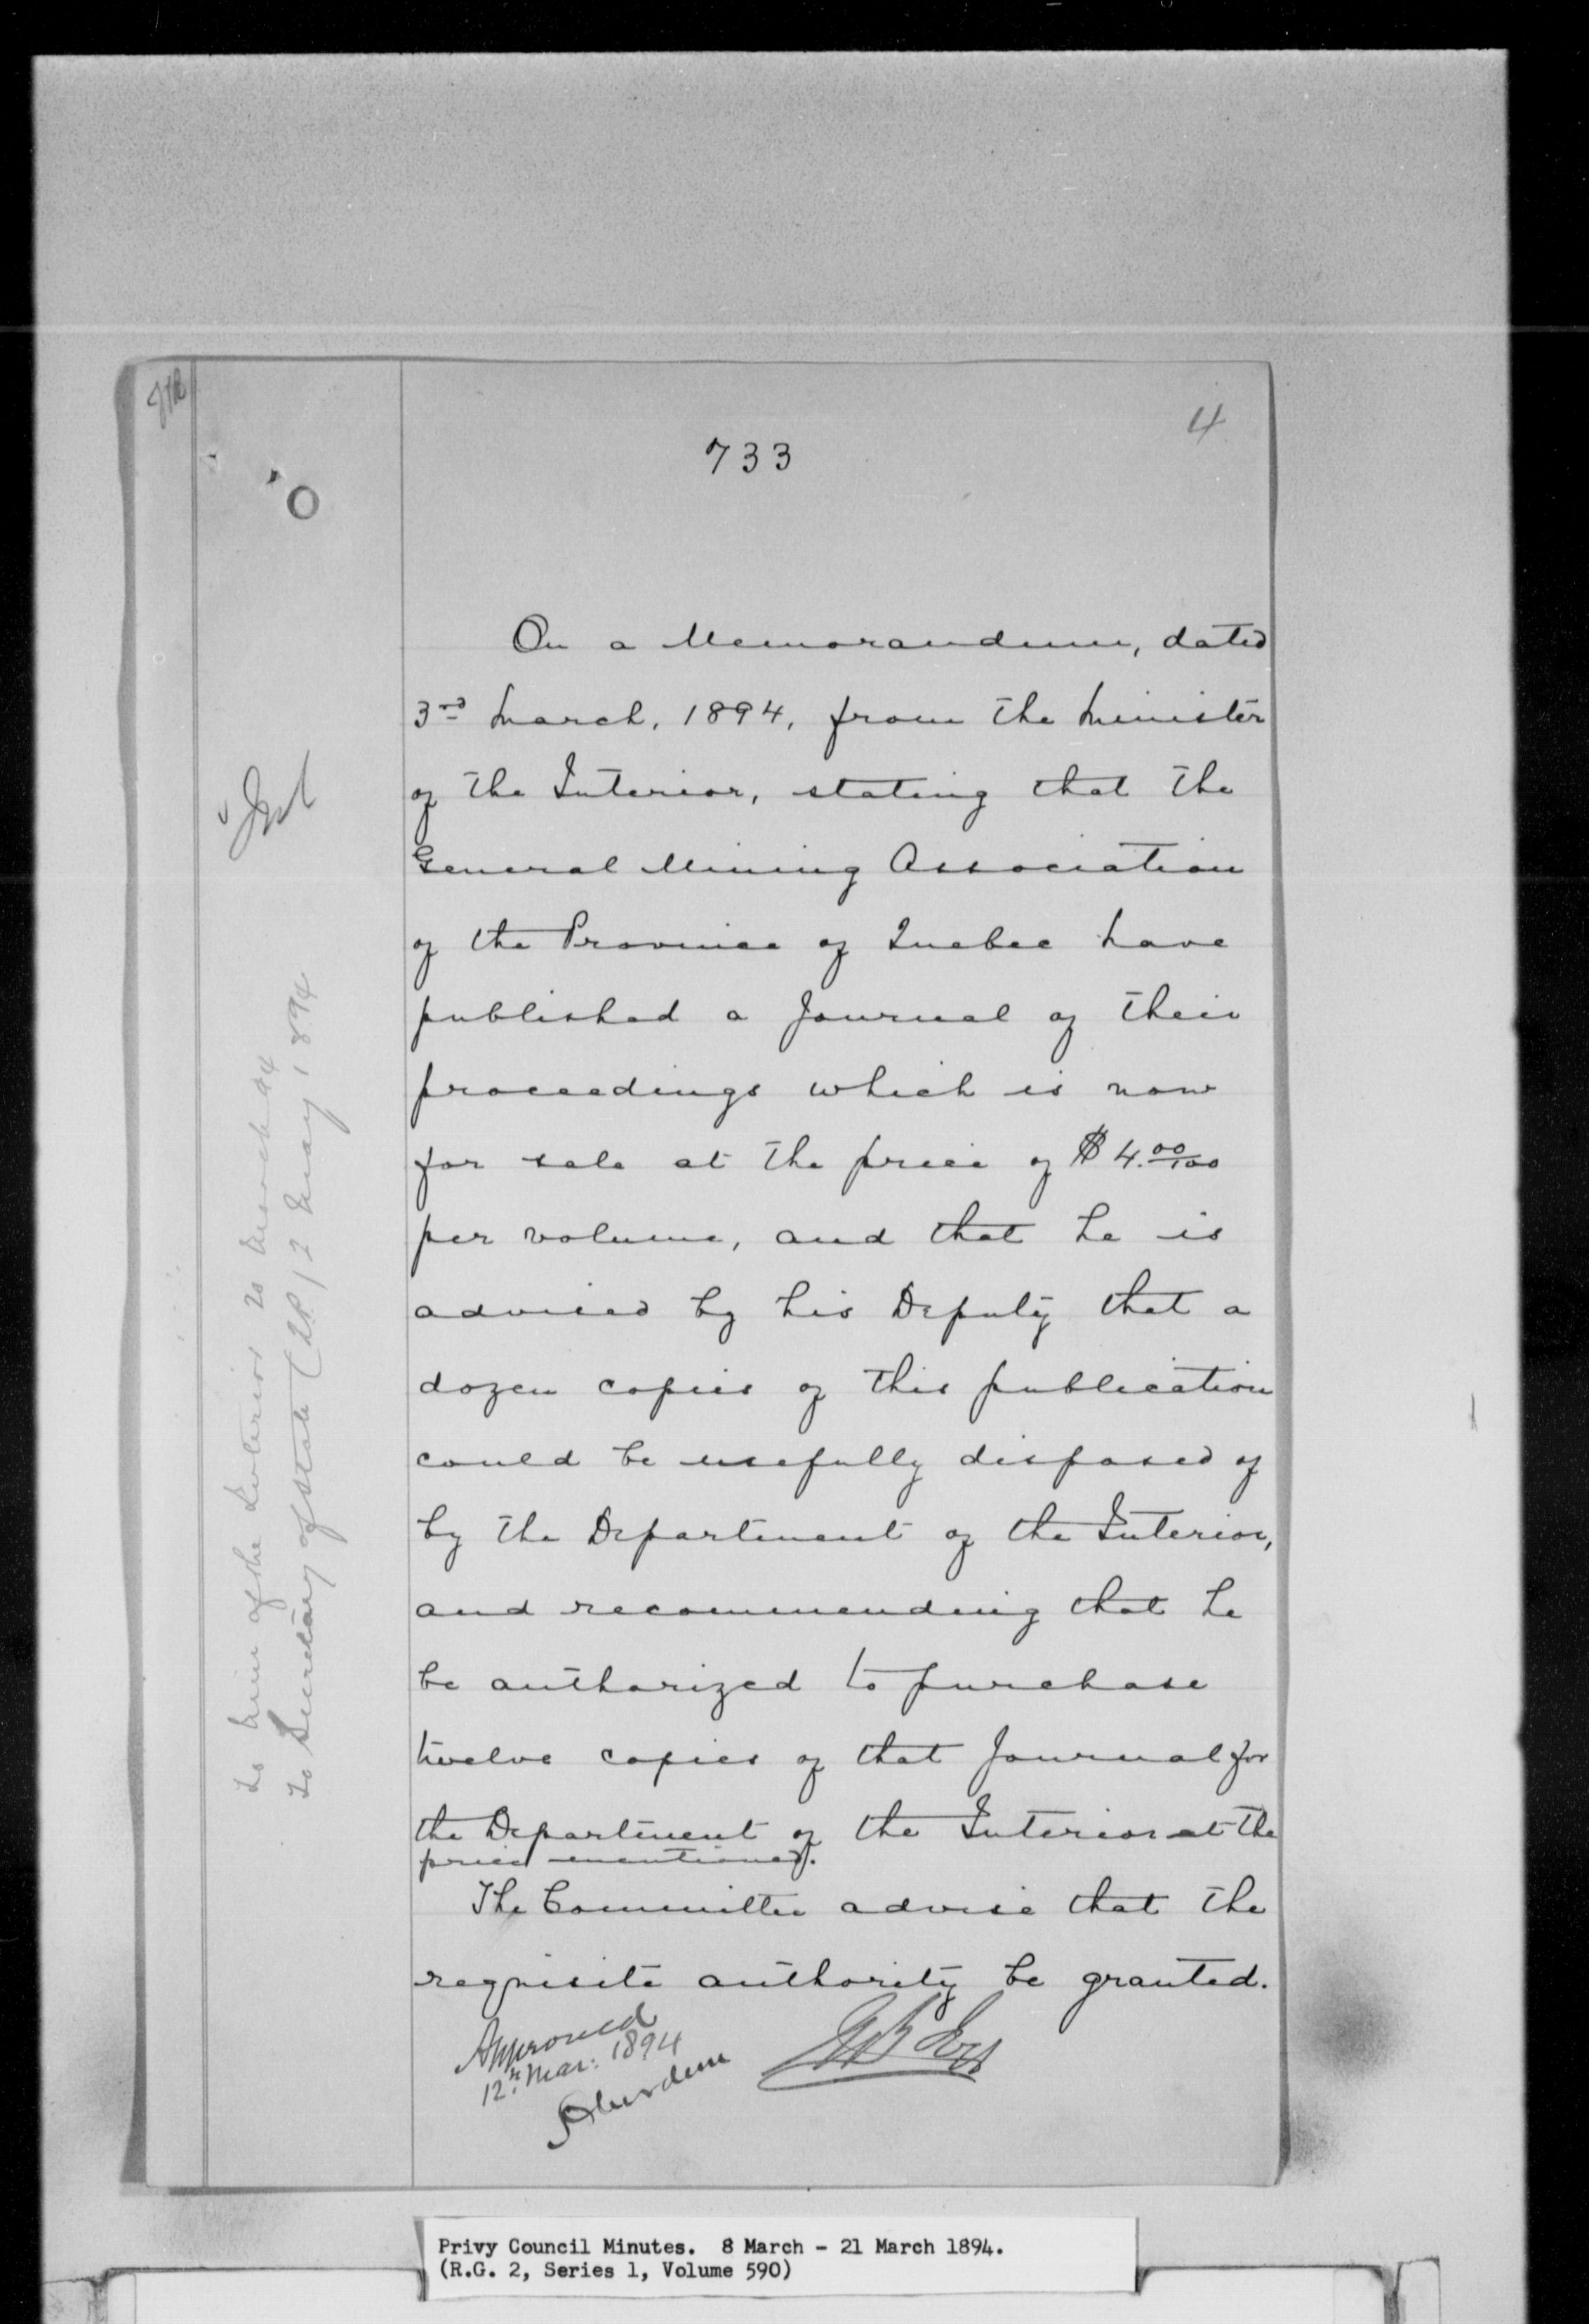 4
733
On a Memorandum, dated
3rd March, 1894, from the Minister
of the Interior, stating that the
General Mining Association
of the Province of Quebec have
published a Journal of their
proceedings which is now
for sale at the price of $4.00/100
per volume, and that he is
advised by his Deputy that a
dozen copies of this publication
could be usefully disposed of
by the Department of the Interior,
and recommending that he
be authorized to purchase
twelve copies of that Journal for
the Department of the Interior at the
price mentioned.
The Committee advise that the
requisite authority be granted.
Approved
12th Mar: 1894
Aberdeen
Int
To Min of the Interior 20 March 94
To Secretary of State 12 May 1894
Privy Council Minutes. 8 March - 21 March 1894.
(R.G. 2, Series 1, Volume 590)